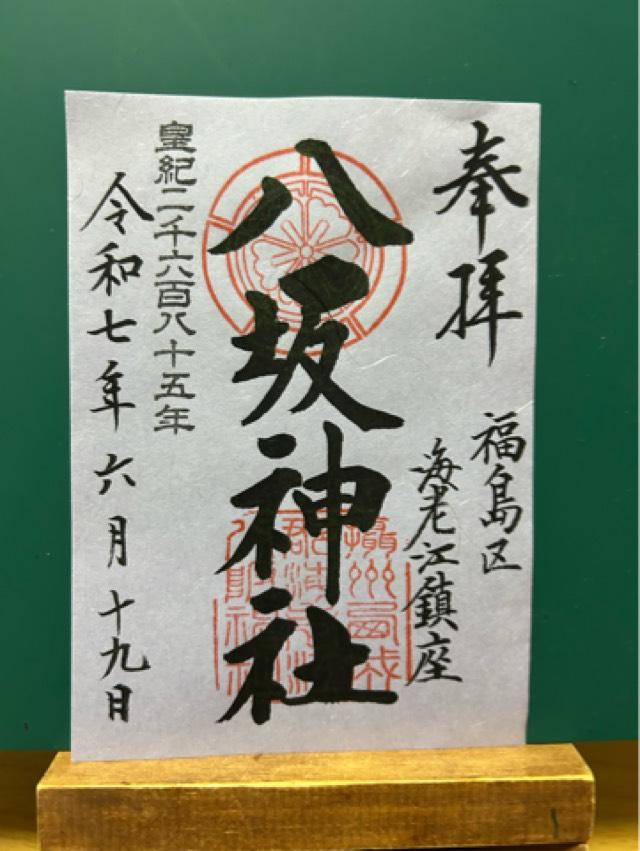 奉拝
福島区
海老江鎮座
八坂神社
皇紀二千六百八十五年
令和七年六月十九日